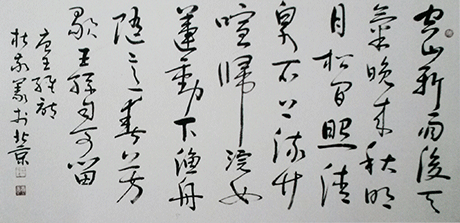 空山新雨後天
氣晚来秋明
月松間照清
泉石上流竹
喧歸浣女
蓮動下漁舟
随意春芳
歇王孫自可留
唐王維詩
於北京